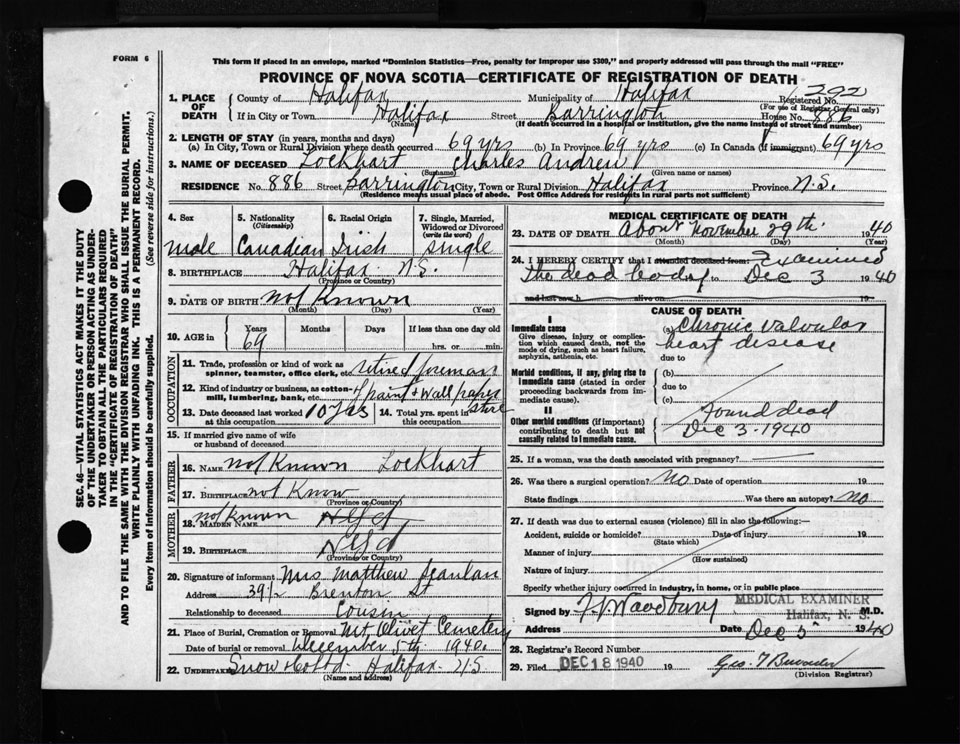 FORM 6
This form if placed in an envelope, marked "Dominion Statistics—Free, penalty for improper use $300," and properly addressed will pass through the mail "FREE"
PROVINCE OF NOVA SCOTIA—CERTIFICATE OF REGISTRATION OF DEATH
SEC. 46—VITAL STATISTICS ACT MAKES IT THE DUTY
OF THE UNDERTAKER OR PERSON ACTING AS UNDER-
TAKER TO OBTAIN ALL THE PARTICULARS REQUIRED
IN THE "CERTIFICATE OF REGISTRATION OF DEATH"
AND TO FILE THE SAME WITH THE DIVISION REGISTRAR WHO SHALL ISSUE THE BURIAL PERMIT.
WRITE PLAINLY WITH UNFADING INK. THIS IS A PERMANENT RECORD.
Every item of information should be carefully supplied. (See reverse side for instructions.)
1. PLACE OF DEATH
County of Halifax Municipality of Halifax Registered No. 292
(For use of Registrar General only)
If in City or Town Halifax Street Barrington House No. 886
(Name) (If death occurred in a hospital or institution, give the name instead of street and number)
2. LENGTH OF STAY (in years, months and days)
(a) In City, Town or Rural Division where death occurred 69 yrs (b) In Province 69 yrs (c) In Canada (if immigrant) 69 yrs
3. NAME OF DECEASED Lockhart Charles Andrew
(Surname) (Given name or names)
RESIDENCE No. 886 Street Barrington City, Town or Rural Division Halifax Province N.S.
(Residence means usual place of abode. Post Office Address for residents in rural parts not sufficient)
4. Sex 5. Nationality (Citizenship) 6. Racial Origin 7. Single, Married, Widowed or Divorced (write the word)
male Canadian Irish single
8. BIRTHPLACE Halifax N.S.
(Province or Country)
9. DATE OF BIRTH not Known
(Month) (Day) (Year)
10. AGE in Years Months Days If less than one day old
69 hrs. or min.
OCCUPATION
11. Trade, profession or kind of work as spinner, teamster, office clerk, etc. retired foreman
12. Kind of industry or business, as cotton-mill, lumbering, bank, etc. paint & wall paper store
13. Date deceased last worked at this occupation 10 yrs 14. Total yrs. spent in this occupation
15. If married give name of wife or husband of deceased
FATHER
16. NAME not Known Lockhart
17. BIRTHPLACE not Know
(Province or Country)
MOTHER
18. MAIDEN NAME not Known Nfld
19. BIRTHPLACE Nfld
(Province or Country)
20. Signature of informant Mrs Matthew Scanlan
Address 39½ Brenton St
Relationship to deceased Cousin
21. Place of Burial, Cremation or Removal Mt Olivet Cemetery
Date of burial or removal December 5th 1940.
22. UNDERTAKER Snow & Co Ltd Halifax N.S
(Name and address)
MEDICAL CERTIFICATE OF DEATH
23. DATE OF DEATH About November 29th 1940
(Month) (Day) (Year)
24. I HEREBY CERTIFY that I attended deceased from Examined
The dead body to Dec 3 1940
and last saw h alive on 19
CAUSE OF DEATH
I
Immediate cause (a) Chronic valvular
Give disease, injury or complication which caused death, not the mode of dying, such as heart failure, asphyxia, asthenia, etc. heart disease
due to
Morbid conditions, if any, giving rise to immediate cause (stated in order proceeding backwards from immediate cause). (b)
due to
(c)
II
Other morbid conditions (if important) contributing to death but not causally related to immediate cause. Found dead
Dec 3 - 1940
25. If a woman, was the death associated with pregnancy?
26. Was there a surgical operation? No Date of operation 19
State findings Was there an autopsy? No
27. If death was due to external causes (violence) fill in also the following:—
Accident, suicide or homicide? Date of injury 19
(State which)
Manner of injury
(How sustained)
Nature of injury
Specify whether injury occurred in industry, in home, or in public place
Signed by F V Woodbury M.D.
MEDICAL EXAMINER
Halifax, N. S.
Address Date Dec 5 1940
28. Registrar's Record Number
29. Filed DEC 18 1940 19
(Division Registrar)